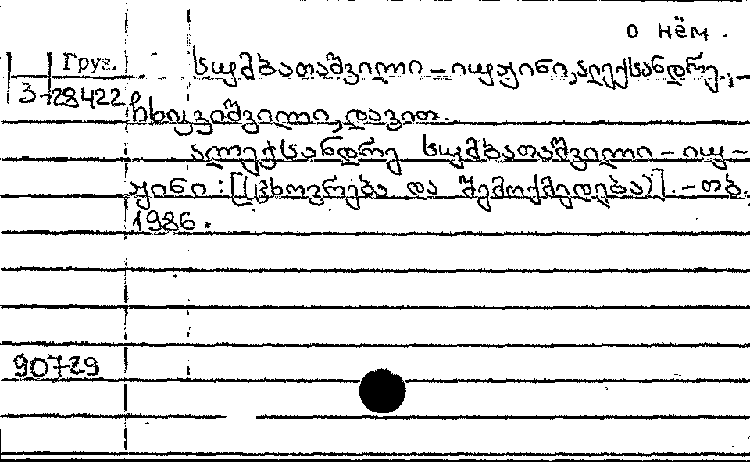 о нём.
Груз. სუმბათაშვილი-იუჟინი, ალექსანდრე.,
3-28422 ჩხიკვიშვილი, დავით.
ალექსანდრე სუმბათაშვილი-იუ-
ჟინი: [(ცხოვრება და შემოქმედება)].-თბ.,
1986.
90729